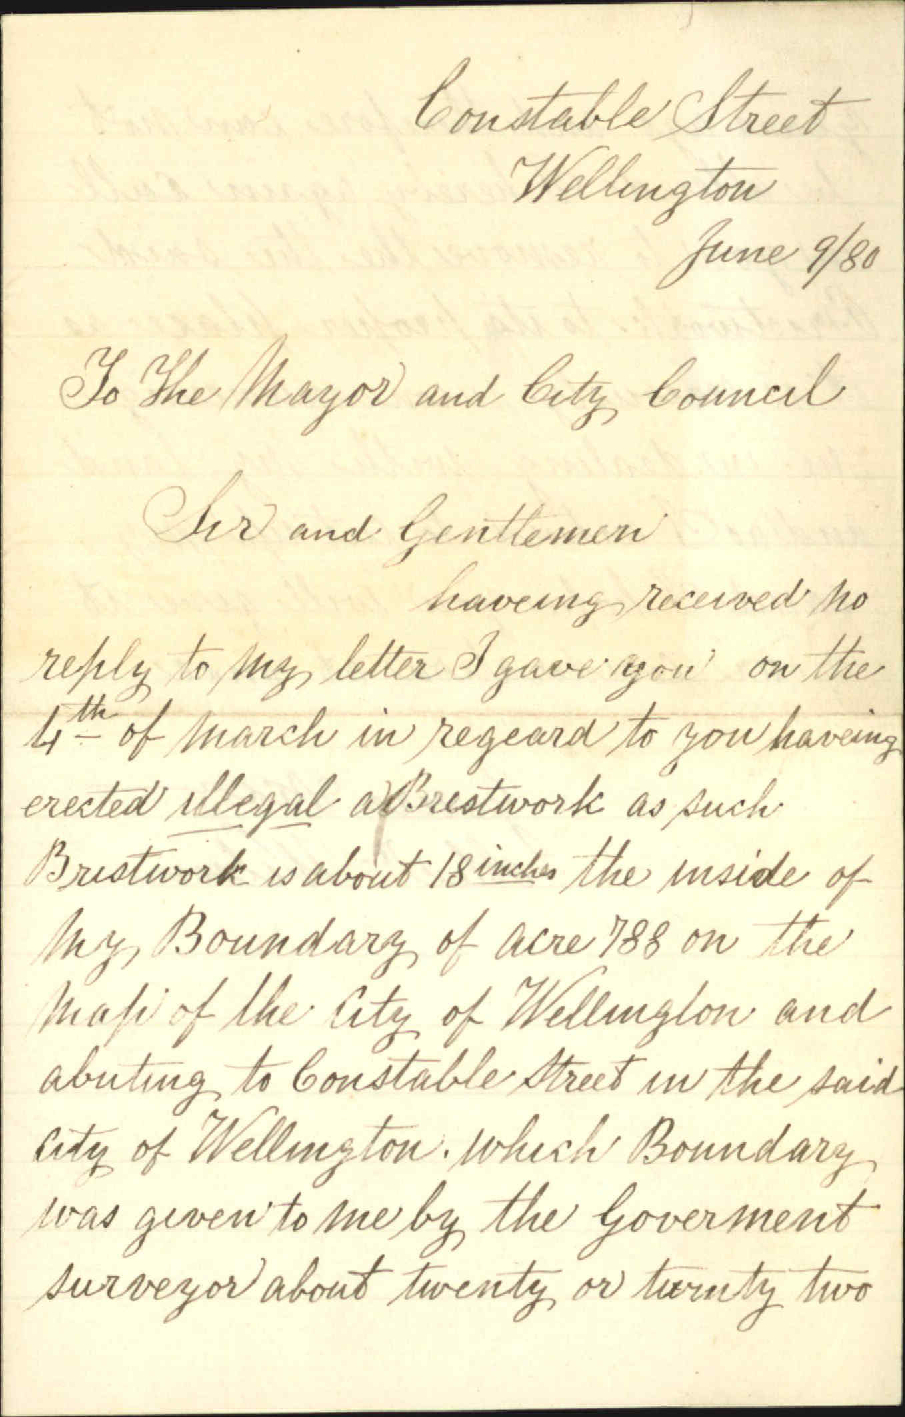 Constable Street
Wellington
June 9/80
To The Mayor and City Council
Sir and Gentlemen
haveing received no
reply to my letter I gave you on the
4th of March in regeard to you haveing
erected illegal a Brestwork as such
Brestwork is about 18 inches the inside of
my Boundary of acre 788 on the
Map of the City of Wellington and
abuting to Constable Street in the said
City of Wellington. which Boundary
was given to me by the Goverment
surveyor about twenty or twenty two